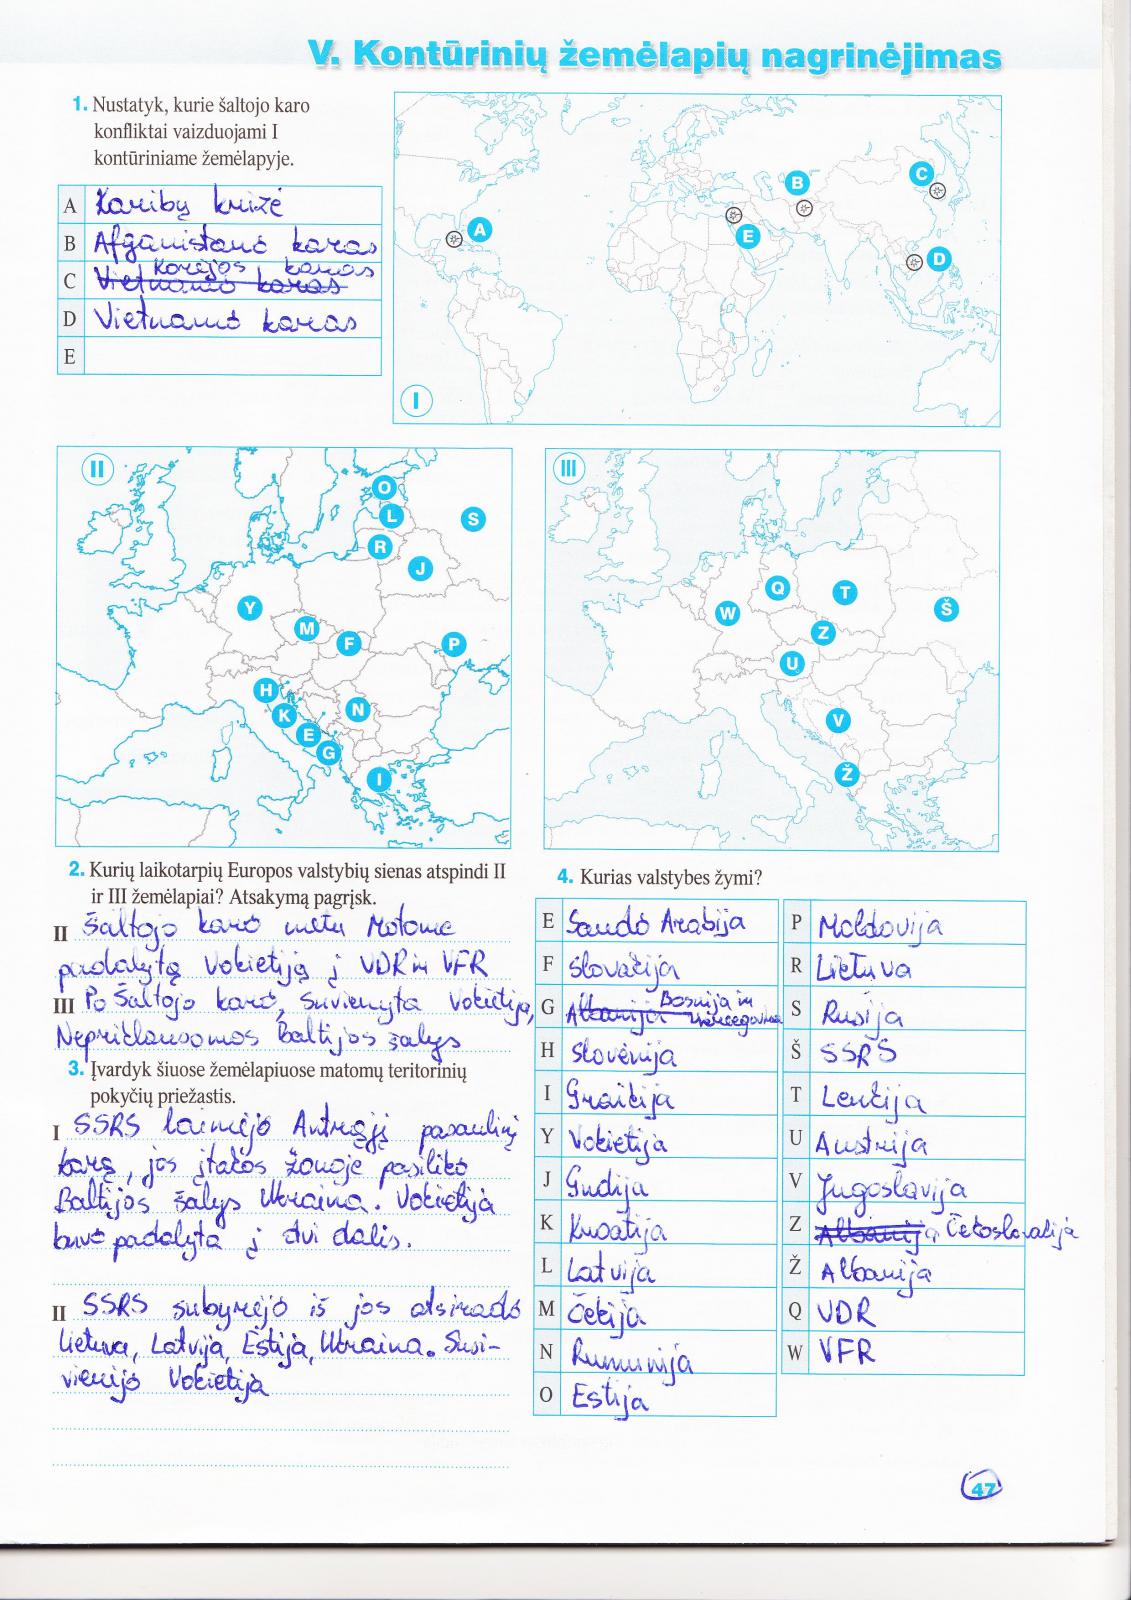 V. Kontūrinių žemėlapių nagrinėjimas
1. Nustatyk, kurie šaltojo karo
konfliktai vaizduojami I
kontūriniame žemėlapyje.
A Karibų krizė
B Afganistano karas
C Vietnamo karas Korėjos karas
D Vietnamo karas
E
A
B
C
D
E
I
II
O
L
S
R
J
Y
M
F
P
H
K
N
E
G
I
III
Q
T
W
Š
Z
U
V
Ž
2. Kurių laikotarpių Europos valstybių sienas atspindi II
ir III žemėlapiai? Atsakymą pagrįsk.
II Šaltojo karo metu Matome
padalytą Vokietiją į VDR ir VFR
III Po Šaltojo karo, suvienyta Vokietija,
Nepriklausomos Baltijos šalys
3. Įvardyk šiuose žemėlapiuose matomų teritorinių
pokyčių priežastis.
I SSRS laimėjo Antrąjį pasaulinį
karą, jos įtakos zonoje pasiliko
Baltijos šalys Ukraina. Vokietija
buvo padalyta į dvi dalis.
II SSRS subyrėjo iš jos atsirado
Lietuva, Latvija, Estija, Ukraina. Susi-
vienijo Vokietija
4. Kurias valstybes žymi?
E Saudo Arabija
F Slovakija
G Albanija Bosnija ir Hercegovina
H Slovėnija
I Graikija
Y Vokietija
J Gudija
K Kroatija
L Latvija
M Čekija
N Rumunija
O Estija
P Moldovija
R Lietuva
S Rusija
Š SSRS
T Lenkija
U Austrija
V Jugoslavija
Z Albanija Čekoslovakija
Ž Albanija
Q VDR
W VFR
47